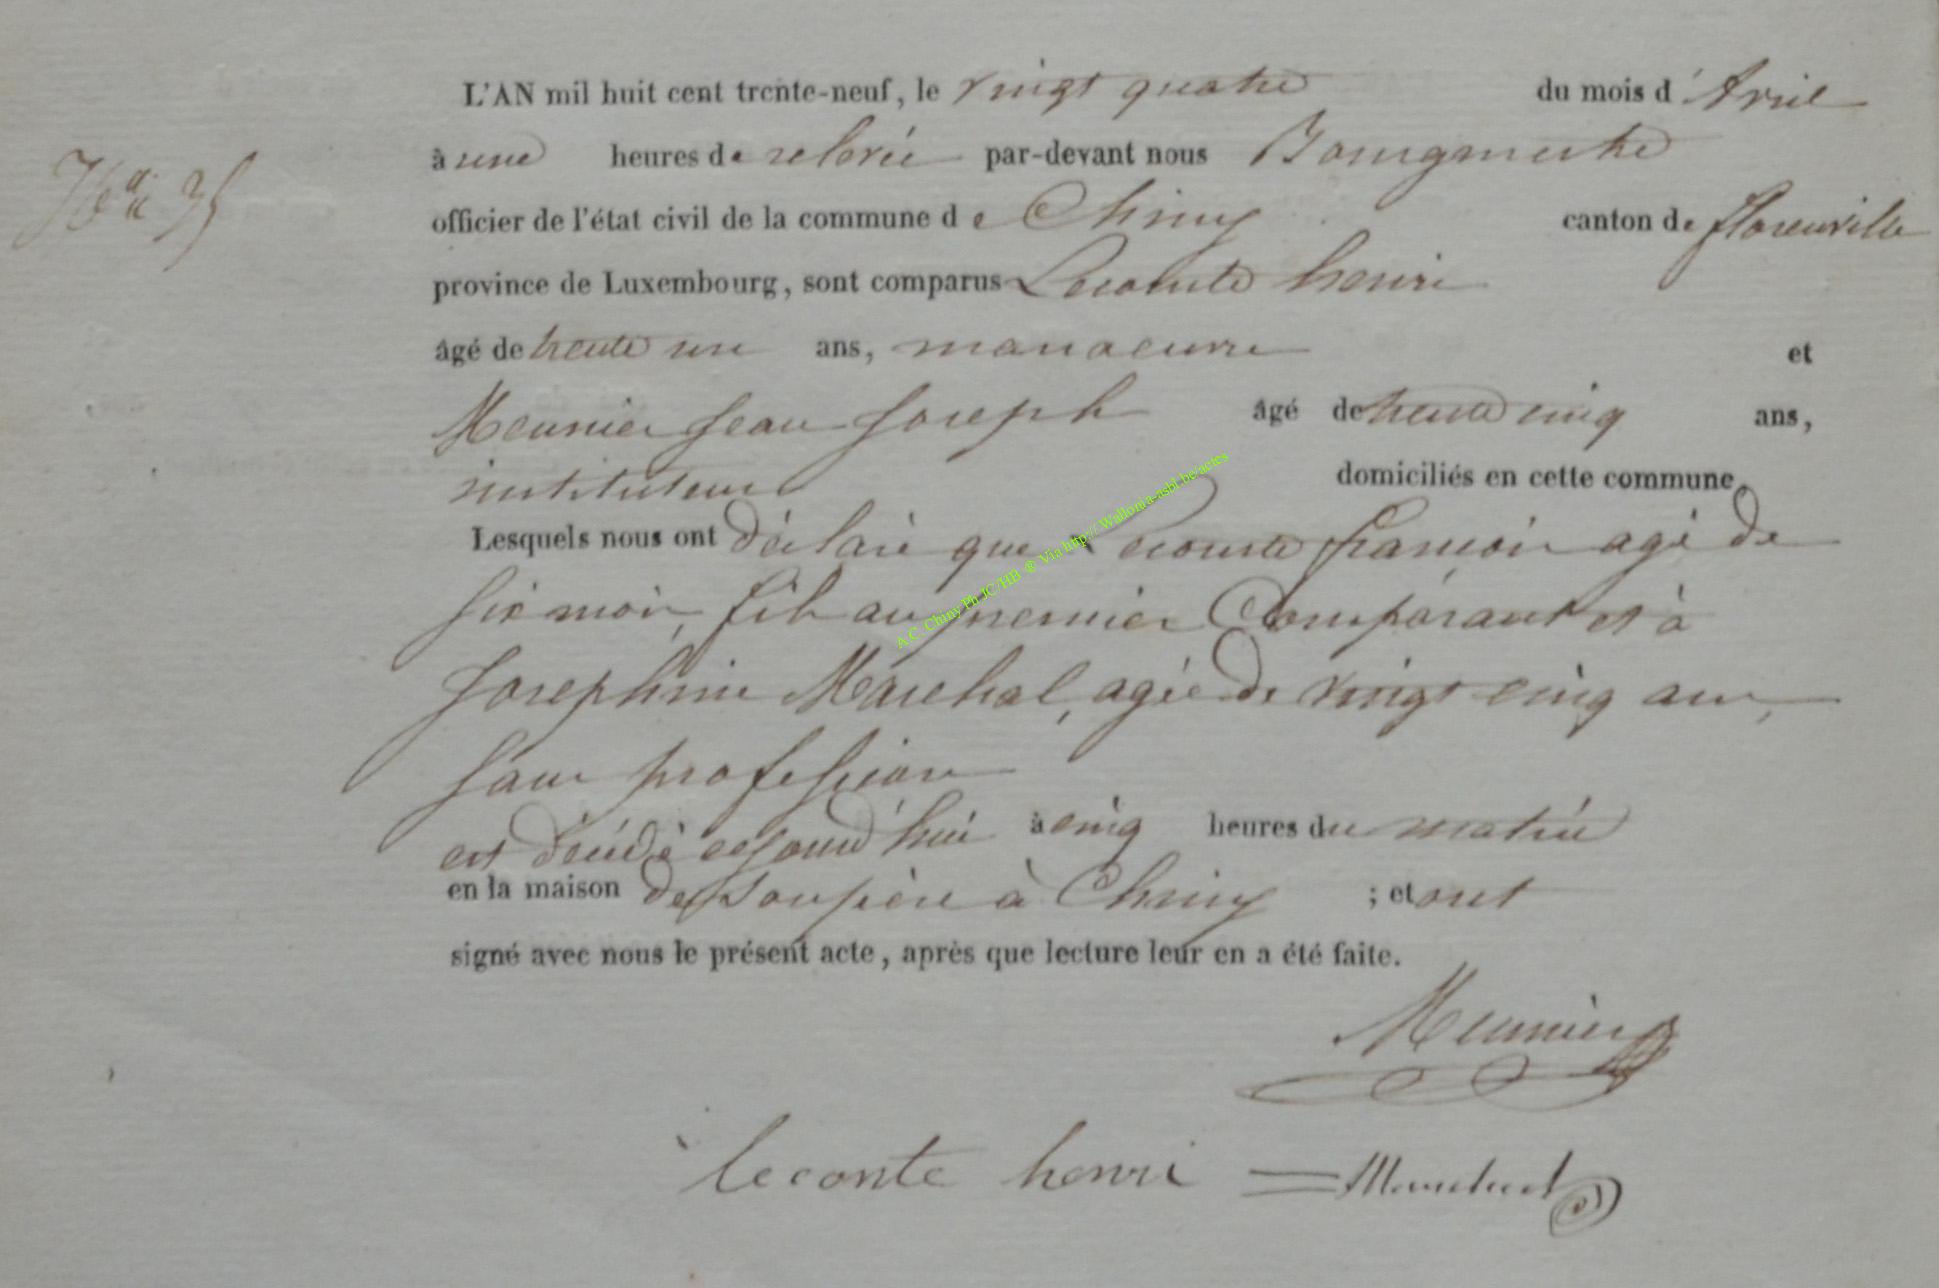 L'AN mil huit cent trente-neuf, le vingt quatre du mois d'Avril
à une heures de relevée par-devant nous Bourgmestre
officier de l'état civil de la commune de Chiny canton de florenville
province de Luxembourg, sont comparus Lecomte henri
âgé de trente un ans, manoeuvre et
Meunier Jean Joseph âgé de trente cinq ans,
instituteur domiciliés en cette commune.
Lesquels nous ont déclaré que Lecomte françois agé de
six mois, fils au premier Comparant et à
Josephine Marechal, agée de vingt cinq ans,
sans profession
est décédé cejourd'hui à cinq heures du matin
en la maison de son père à Chiny ; et ont
signé avec nous le présent acte, après que lecture leur en a été faite.
Meunier
leconte henri
A.C. Chiny Ph JC/HB ® Via http:// Wallonia-asbl.be/actes